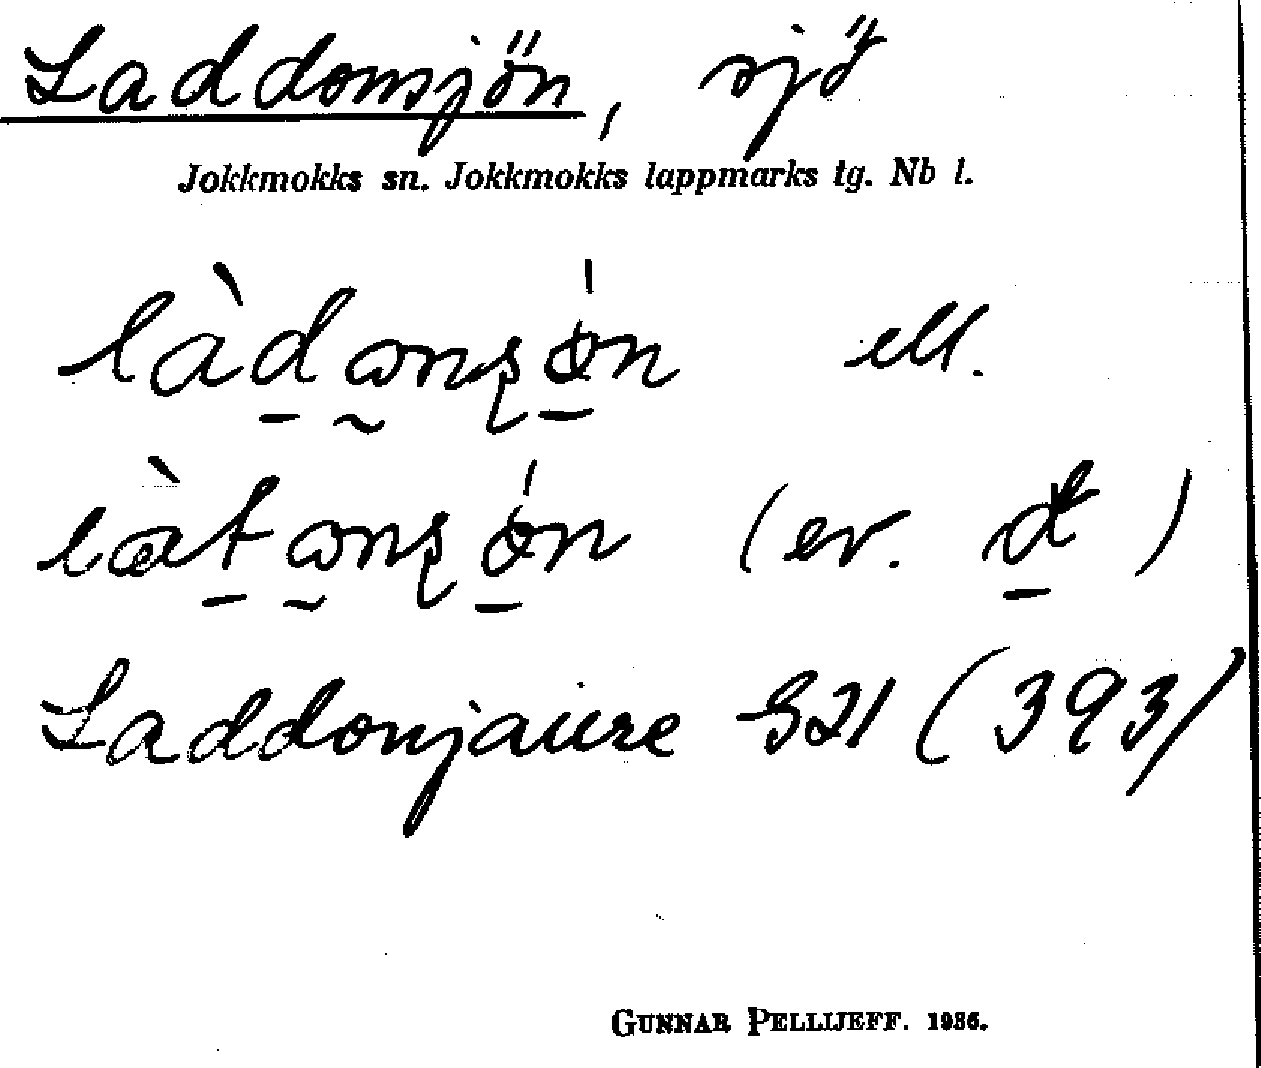 Laddonsjön, sjö
Jokkmokks sn. Jokkmokks lappmarks tg. Nb l.
ell.
(ev. đ̱)
Laddonjaure S21 (393)
GUNNAR PELLIJEFF. 1936.